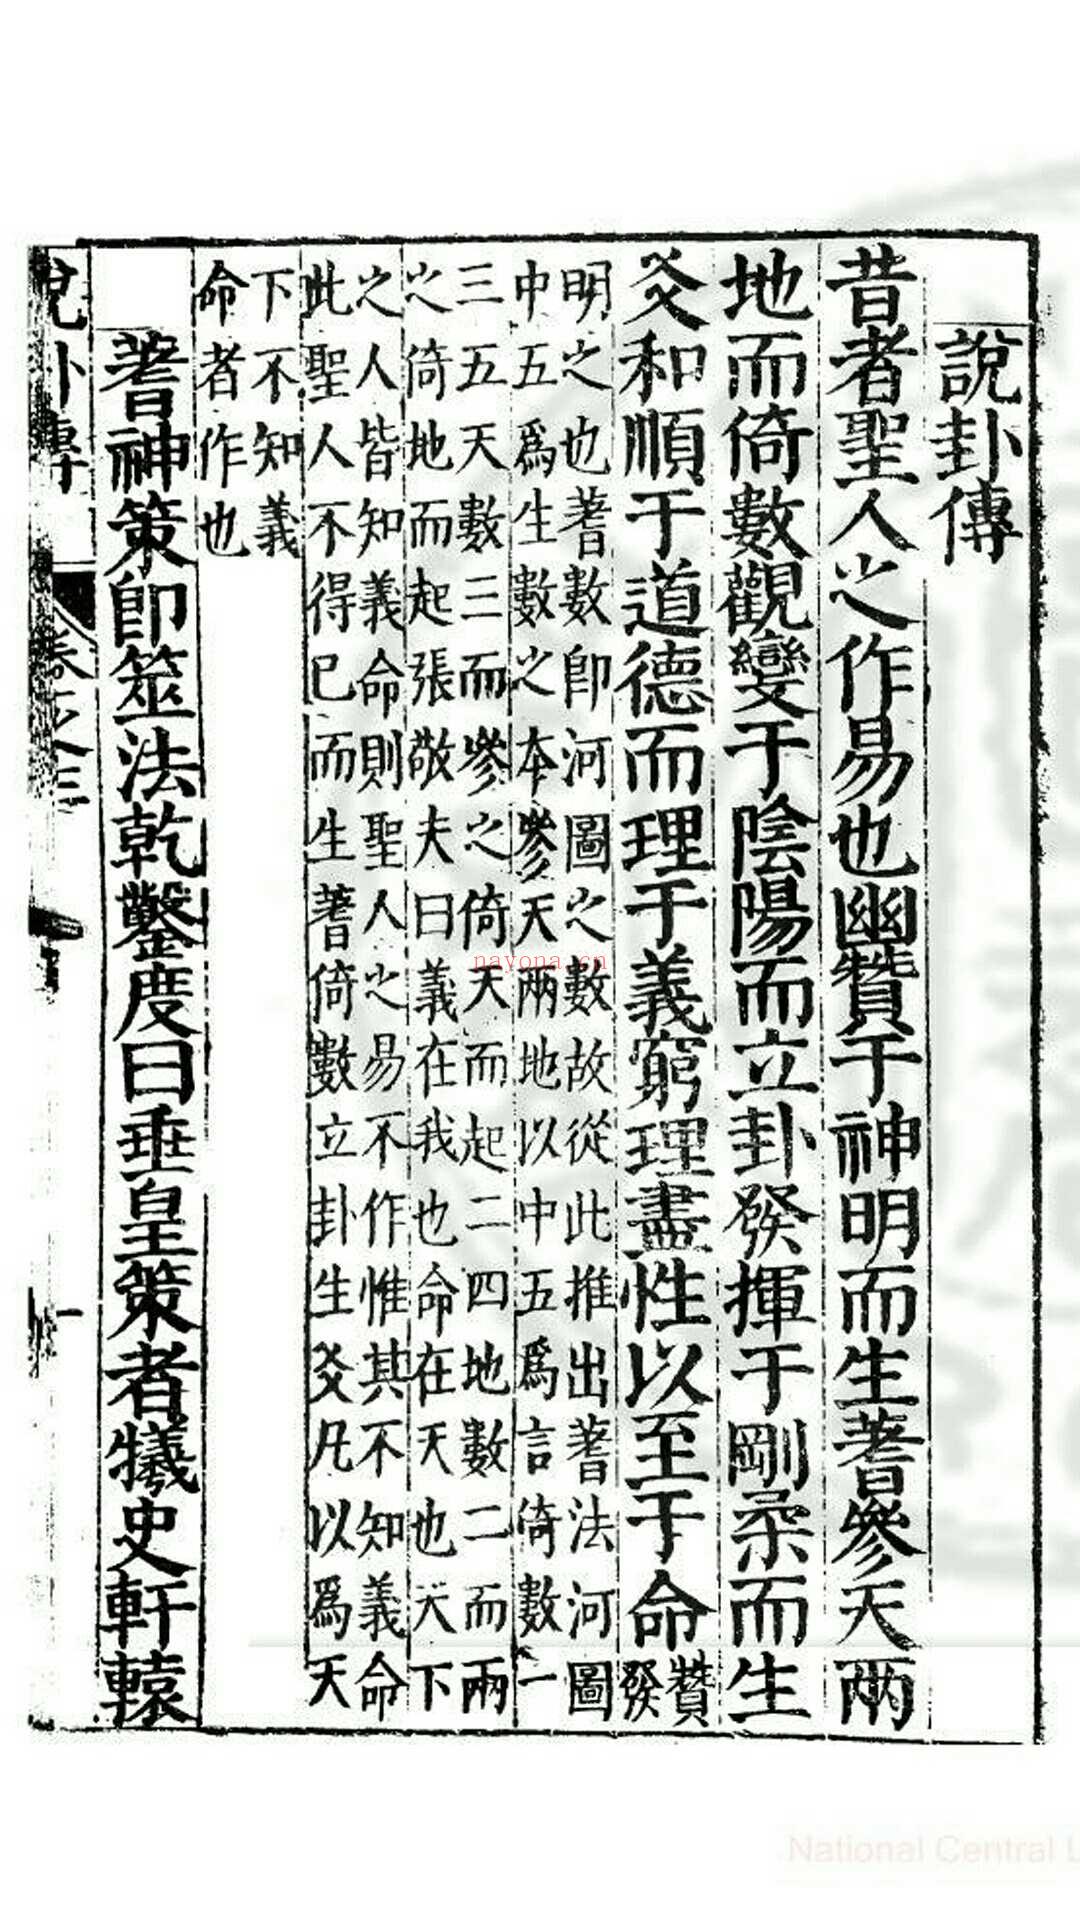 說卦傳
昔者聖人之作易也幽贊于神明而生蓍參天兩
地而倚數觀變于陰陽而立卦發揮于剛柔而生
爻和順于道德而理于義窮理盡性以至于命贊
發
明之也蓍數卽河圖之數故從此推出蓍法河圖
中五爲生數之本參天兩地以中五爲言倚數一
三五天數三而參之倚天而起二四地數二而兩
之倚地而起張敬夫曰義在我也命在天也天下
之人皆知義命則聖人之易不作惟其不知義命
此聖人不得已而生蓍倚數立卦生爻凡以爲天
下不知義
命者作也
蓍神策卽筮法乾鑿度曰垂皇策者犧史軒轅
說卦傳
卷之三
一
nayona.cn
National Central L